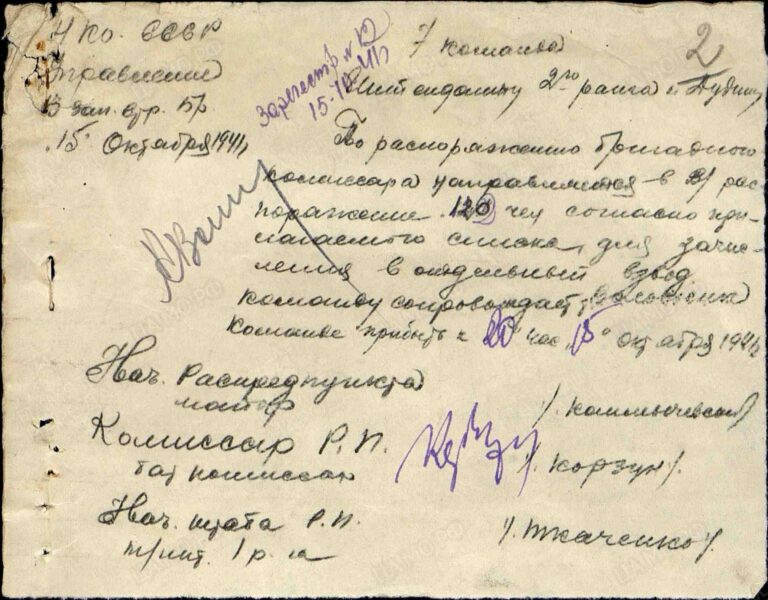 НКО. СССР
Управление
В зап. стр. бр
"15" Октября 1941г
Зарегестр. №
15.
7 команда
2
Интенданту 2го ранга
По распоряжению бригадного
комиссара направляется в В/ рас-
поражение 120 чел согласно при-
лагаемого списка, для зачис-
ления в отдельный взвод
Команду сопровождает
Команде прибыть к 20 час "15" октября 1941г
Нач. Распредпункта
майор
Комиссар Р.П.
бат комиссар
/. Корзун /.
Нач. штата Р.П.
т/инт. 1 р.
/. Ткаченко /.